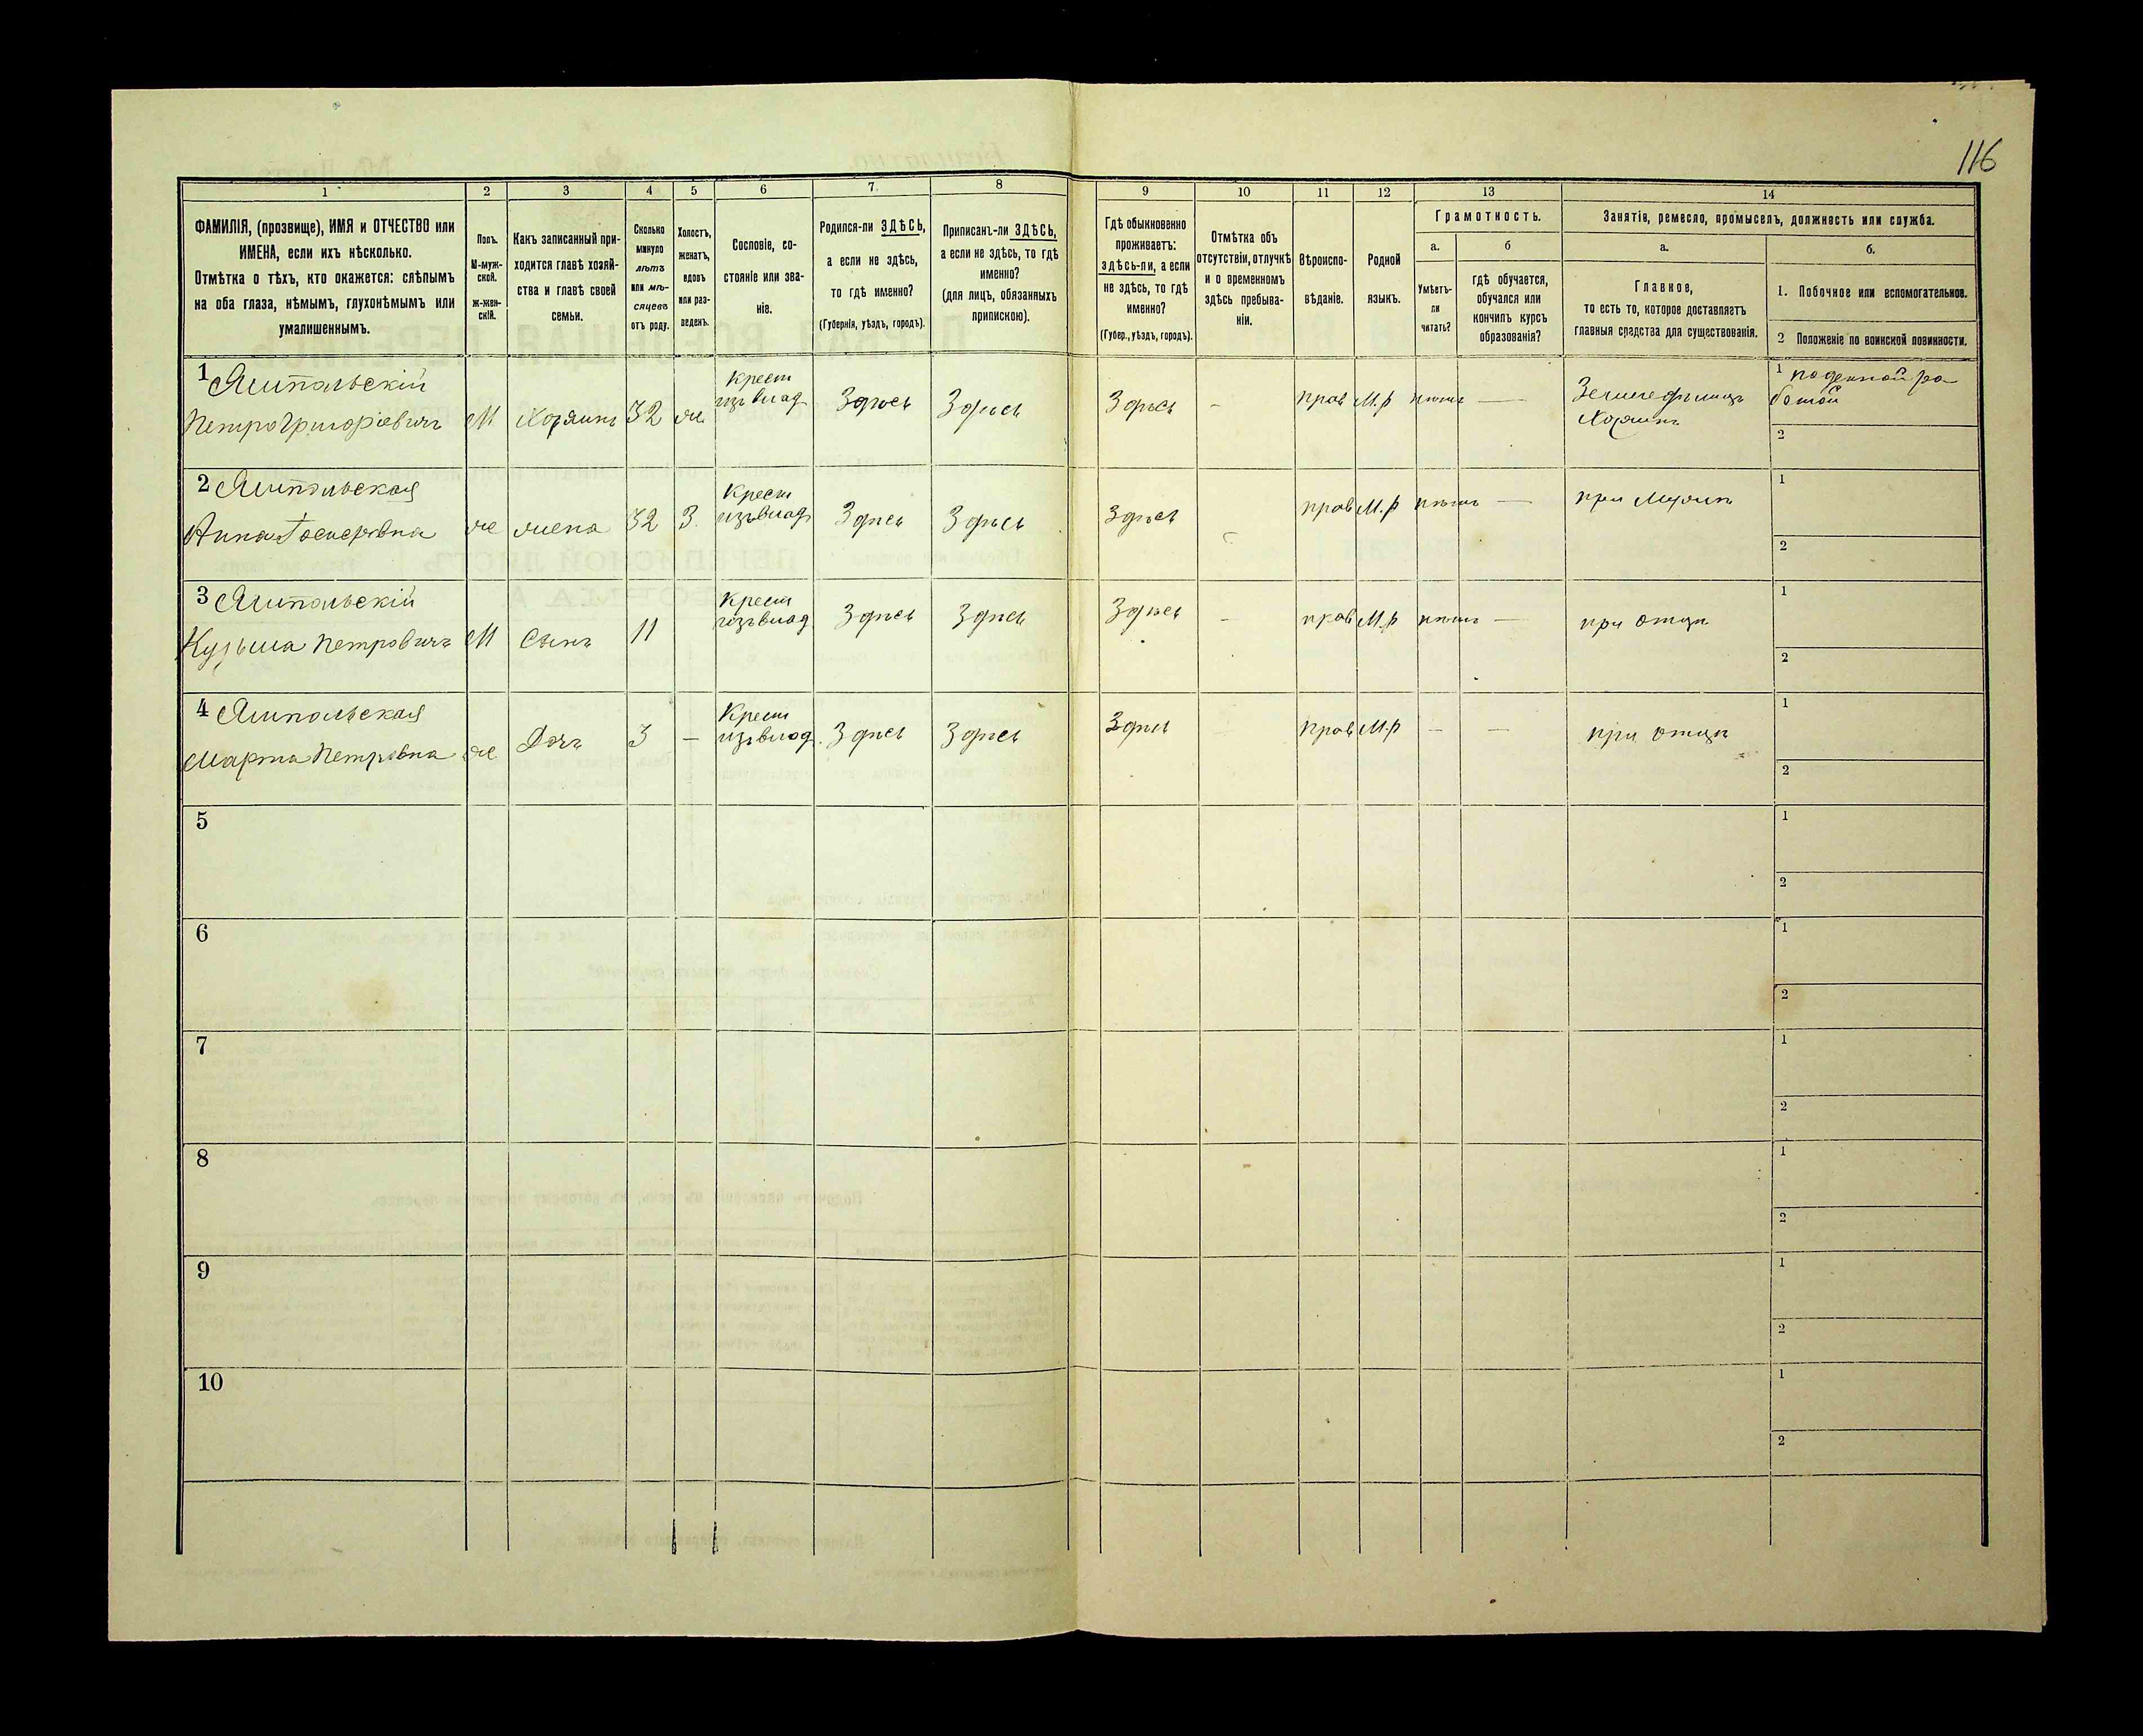 116
1
2
3
4
5
6
7.
8
9
10
11
12
13
14
ФАМИЛІЯ, (прозвище), ИМЯ и ОТЧЕСТВО или
ИМЕНА, если ихъ нѣсколько.
Отмѣтка о тѣхъ, кто окажется: слѣпымъ
на оба глаза, нѣмымъ, глухонѣмымъ или
умалишеннымъ.
Полъ.
М-муж-
ской.
Ж-жен-
скій.
Какъ записанный при-
ходится главѣ хозяй-
ства и главѣ своей
семьи.
Сколько
минуло
лѣтъ
или мѣ-
сяцевъ
отъ роду.
Холостъ,
женатъ,
вдовъ
или раз-
веденъ.
Сословіе, со-
стояніе или зва-
ніе.
Родился-ли ЗДѢСЬ,
а если не здѣсь,
то гдѣ именно?
(Губернія, уѣздъ, городъ).
Приписанъ-ли ЗДѢСЬ,
а если не здѣсь, то гдѣ
именно?
(для лицъ, обязанныхъ
припискою).
Гдѣ обыкновенно
проживаетъ:
здѣсь-ли, а если
не здѣсь, то гдѣ
именно?
(Губер., уѣздъ, городъ).
Отмѣтка объ
отсутствіи, отлучкѣ
и о временномъ
здѣсь пребыва-
ніи.
Вѣроиспо-
вѣданіе.
Родной
языкъ.
Грамотность.
а.
Умѣетъ-
ли
читать?
б
гдѣ обучается,
обучался или
кончилъ курсъ
образованія?
Занятія, ремесло, промыселъ, должность или служба.
а.
Главное,
то есть то, которое доставляетъ
главныя средства для существованія.
б.
1. Побочное или вспомогательное.
2 Положеніе по воинской повинности.
1 Ямпольскій
Петро Григоріевичъ
М
Хозяинъ
32
ж.
Крест
изъ влад
Здѣсь
Здѣсь
Здѣсь
-
прав
М.р
нѣтъ
—
Земледѣлецъ
Хозяинъ
1 поденной ра
ботой
2
2 Ямпольская
Анна
же
жена
32
З.
Крест
изъ влад
Здѣсь
Здѣсь
Здѣсь
прав
М.р
нѣтъ
—
при
1
2
3 Ямпольскій
Кузьма Петровичъ
М
Сынъ
11
Крест
изъ влад
Здѣсь
Здѣсь
Здѣсь
-
прав
М.р
нѣтъ
—
при отцѣ
1
2
4 Ямпольская
Марта Петровна
же
Дочь
3
—
Крест
изъ влад.
Здѣсь
Здѣсь
Здѣсь
прав
М.р
-
-
при отцѣ
1
2
5
1
2
6
1
2
7
1
2
8
1
2
9
1
2
10
1
2